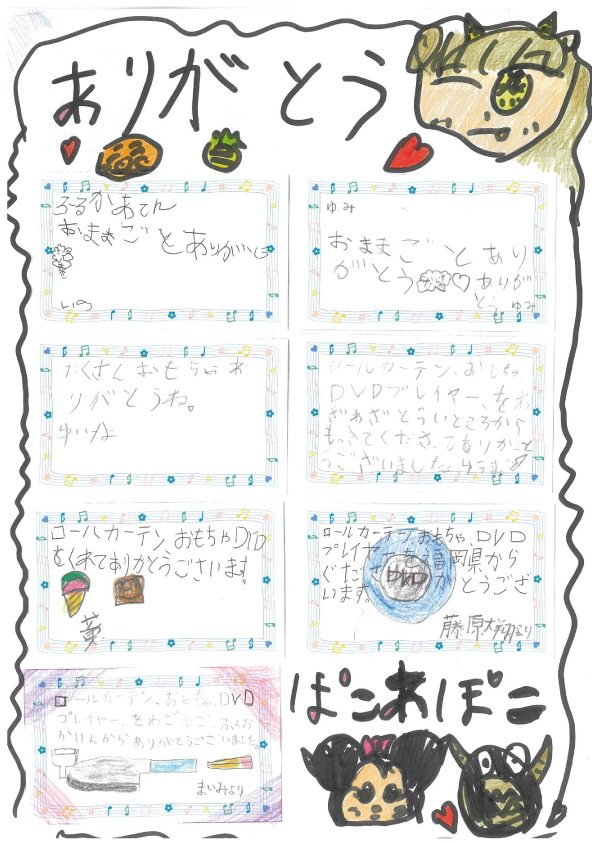 ありがとう
ろーるかあてん
おままごとありがとう
ゆみ
おままごとあり
がとう
ありが
とう ゆみ
たくさんおもちゃあ
りがとうね。
ゆいな
ロールカーテン、おもちゃ、
DVDプレイヤー、をわ
ざわざとういところから
もってきてくださってありがと
うございました。
ロールカーテン、おもちゃDVD
をくれてありがとうございます。
ロールカーテン、おもちゃ、DVD
プレイヤーを
岡県から
くださ
とうござ
います。
DVD
藤原
より
ロールカーテン、おもちゃ、DVD
プレイヤー、をわざわざ、ふくお
かけんからありがとうございました。
まいみより